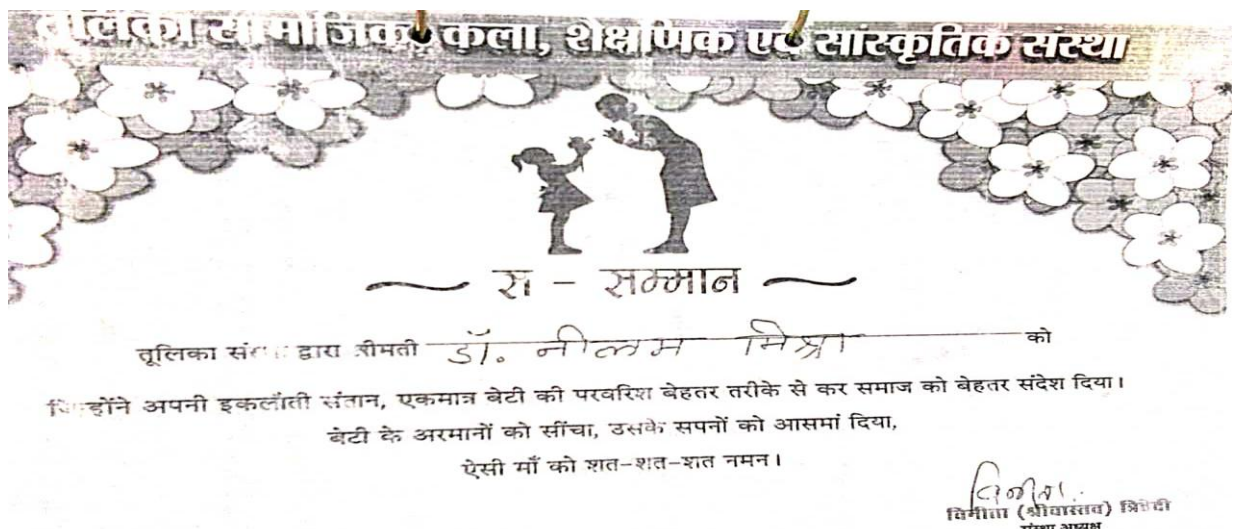 तूलिका सामाजिक, कला, शैक्षणिक एवं सांस्कृतिक संस्था
स - सम्मान
तूलिका संस्था द्वारा श्रीमती डॉ. नीलम मिश्रा को
जिन्होंने अपनी इकलौती संतान, एकमात्र बेटी की परवरिश बेहतर तरीके से कर समाज को बेहतर संदेश दिया।
बेटी के अरमानों को सींचा, उसके सपनों को आसमां दिया,
ऐसी माँ को शत-शत-शत नमन।
विनीता (श्रीवास्तव) त्रिवेदी
संस्था अध्यक्ष